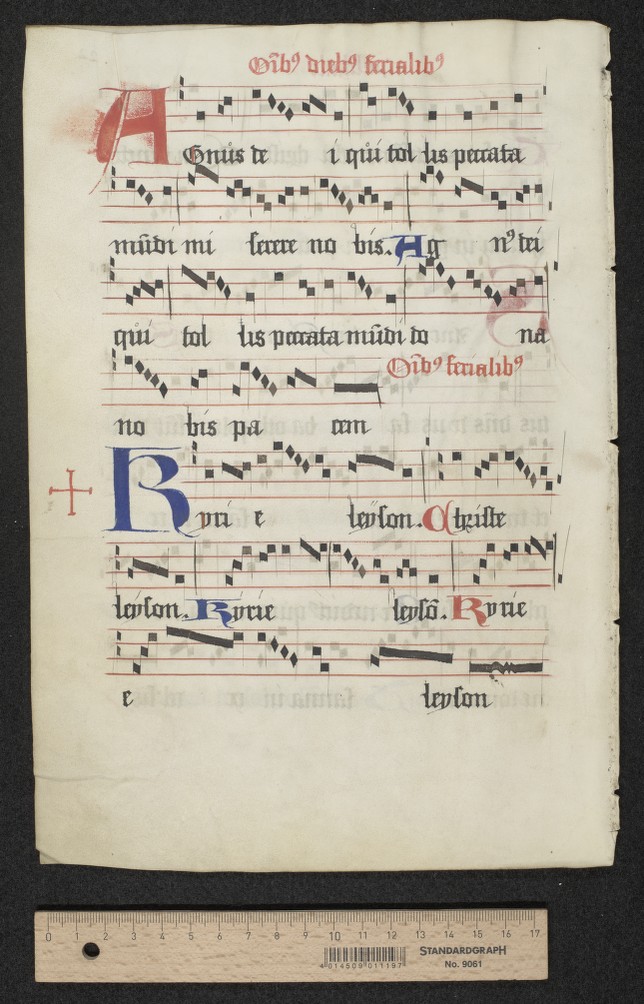 Oı̄bꝰ diebꝰ ferialibꝰ
AGnus de i qui tol lis peccata
mūdi mi serere no bis. Ag nꝰ dei
qui tol lis peccata mūdi do na
no bis pa cem Oı̄bꝰ ferialibꝰ
Kyri e leyson. Christe
leyson. Kyrie leysō. Kyrie
e leyson
0 1 2 3 4 5 6 7 8 9 10 11 12 13 14 15 16 17
4 014509 011197
STANDARDGRAPH
No. 9061